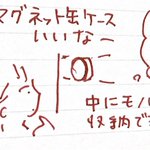 マグネット缶ケース
いいなー
中にモノ
収納で